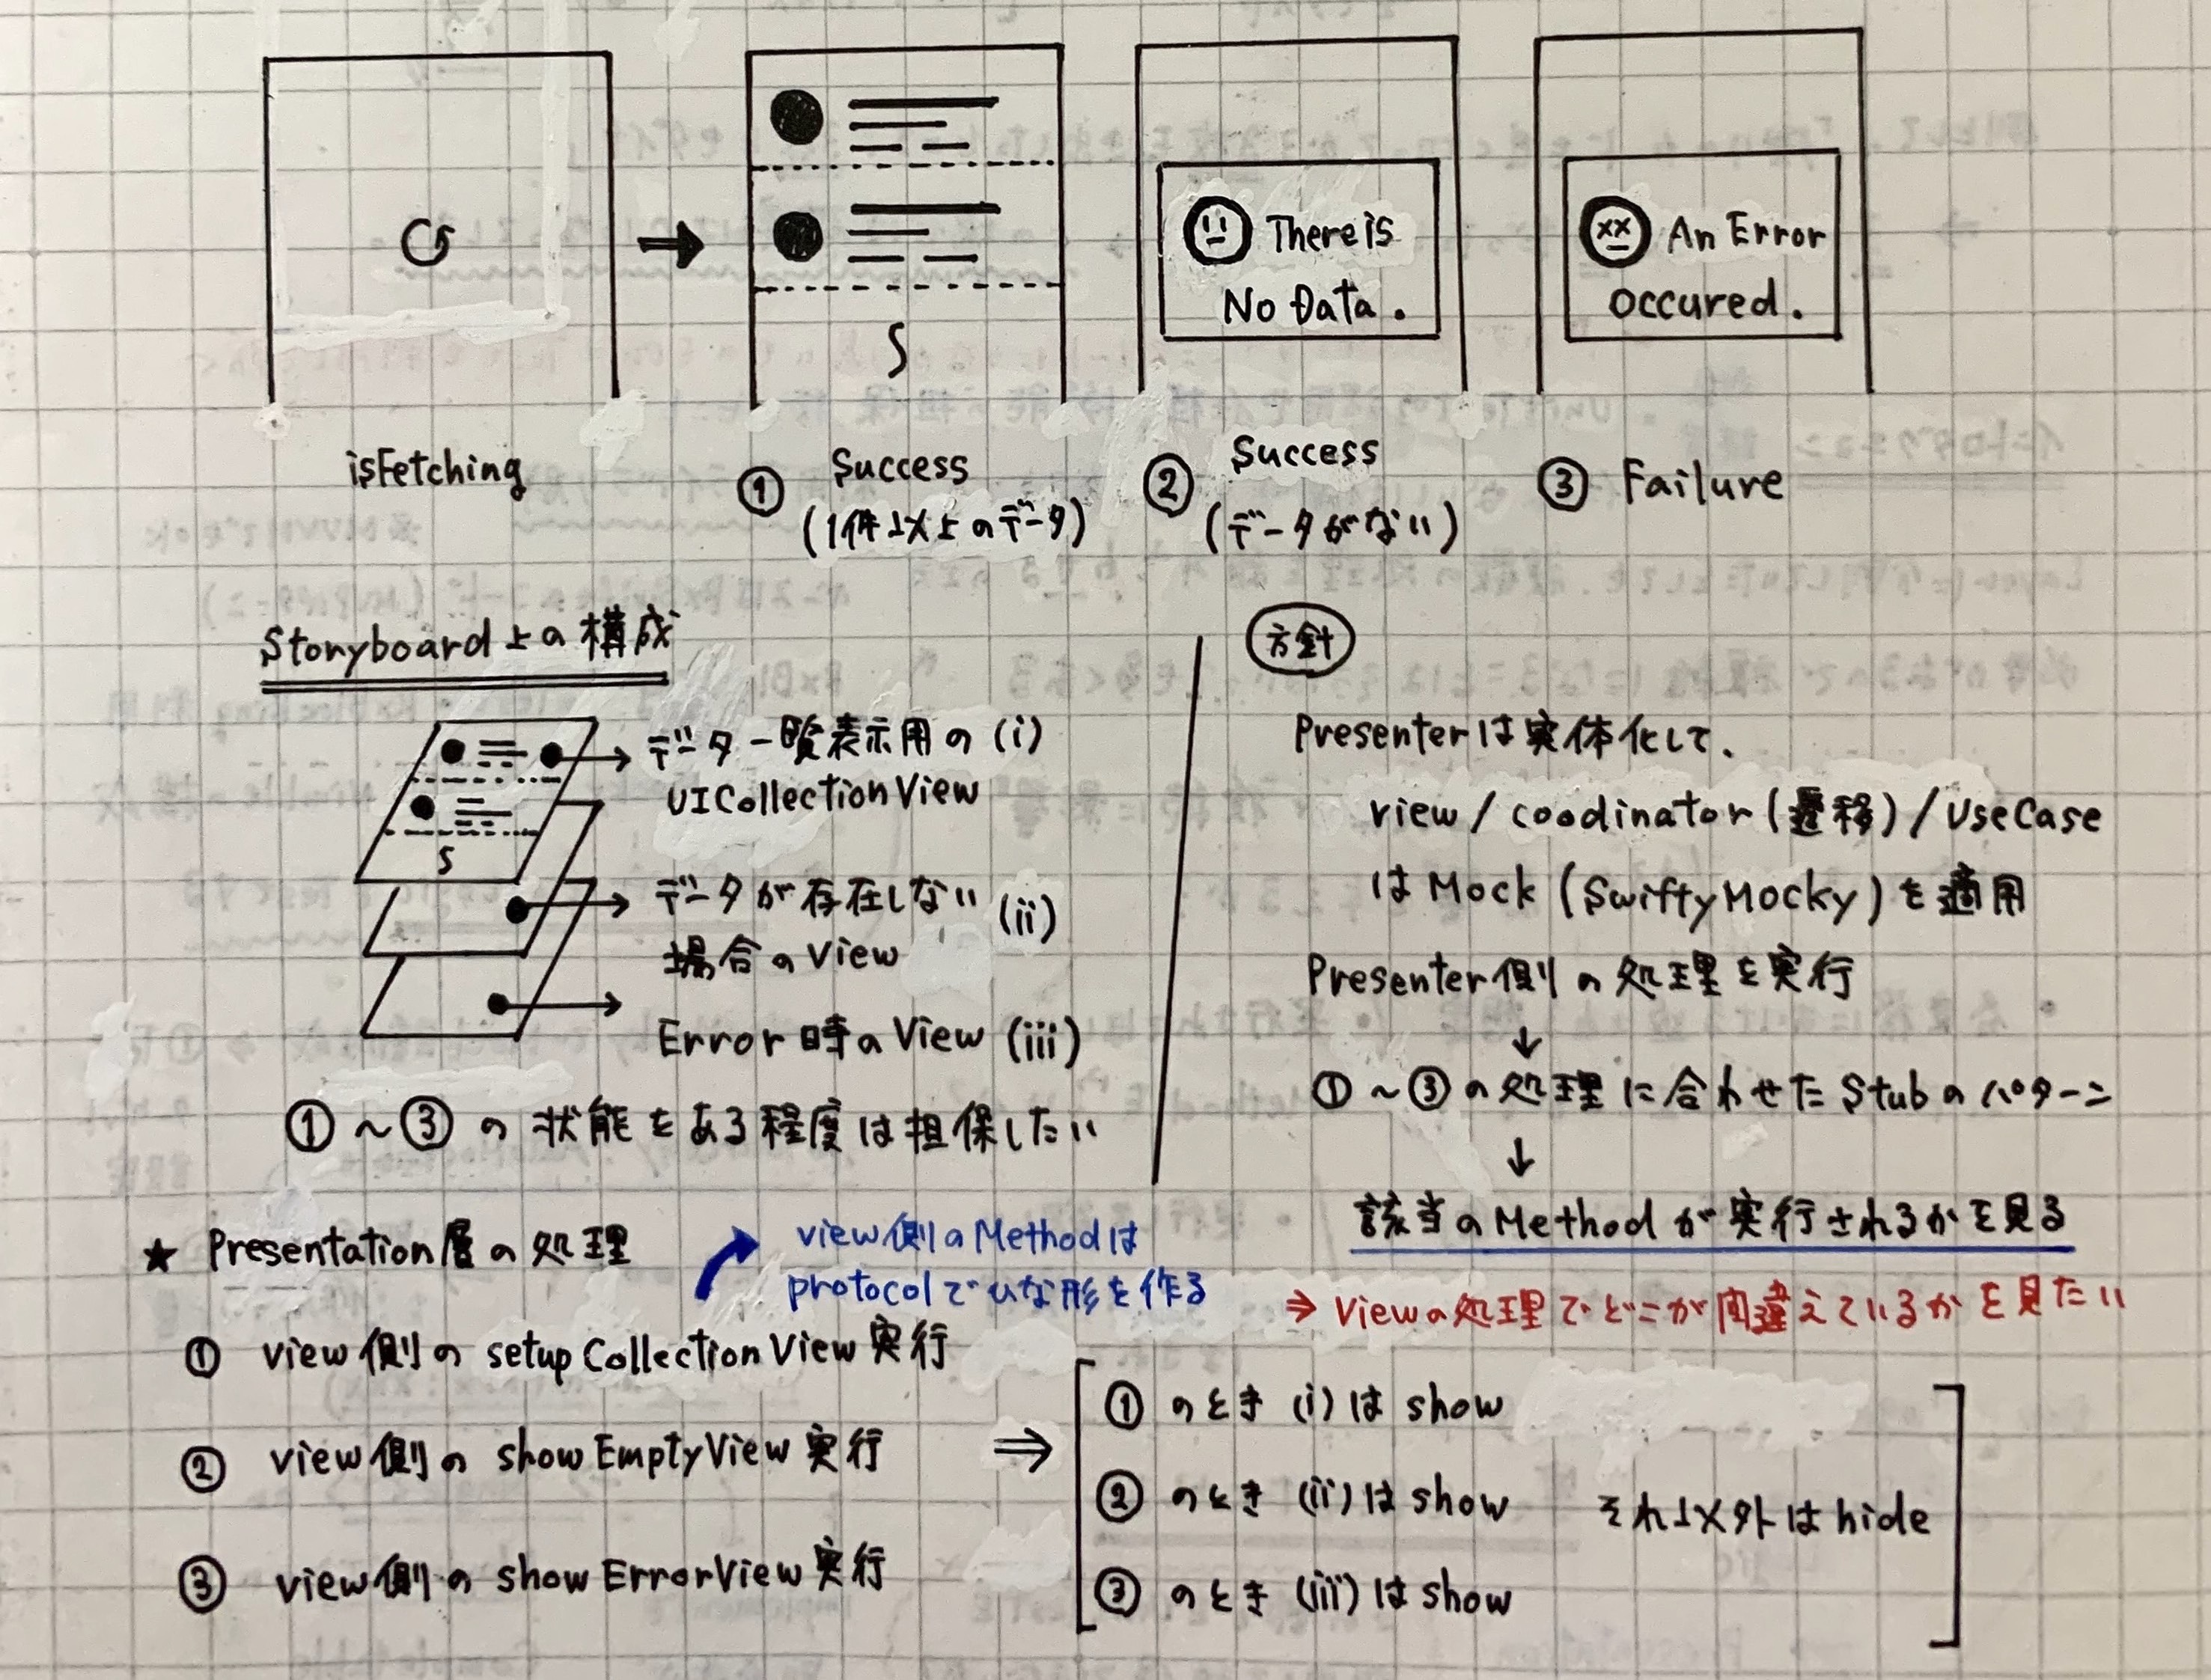 There is
No Data.
An Error
occured.
isFetching
① Success
(1件以上のデータ)
② Success
(データがない)
③ Failure
Storyboard上の構成
データ一覧表示用の (i)
UICollectionView
データが存在しない (ii)
場合のView
Error時のView (iii)
①～③の状態をある程度は担保したい
方針
Presenterは実体化して、
view / coodinator (遷移) / UseCase
はMock (SwiftyMocky) を適用
Presenter側の処理を実行
↓
①～③の処理に合わせたStubのパターン
↓
該当のMethodが実行されるかを見る
⇒ Viewの処理でどこが間違えているかを見たい
★ Presentation層の処理
view側のMethodは
protocolでひな形を作る
① view側の setupCollectionView実行
② view側の showEmptyView実行
③ view側の showErrorView実行
⇒
① のとき (i)は show
② のとき (ii)は show
③ のとき (iii)は show
それ以外はhide